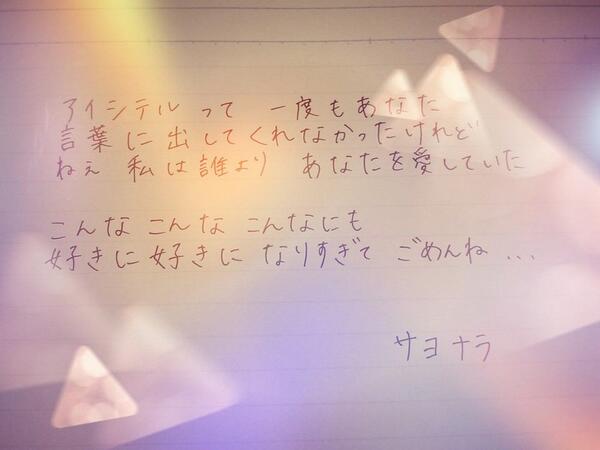 アイシテル って 一度もあなた
言葉に出してくれなかったけれど
ねぇ 私は誰より あなたを愛していた
こんな こんな こんなにも
好きに好きに なりすぎて ごめんね ...
サヨナラ